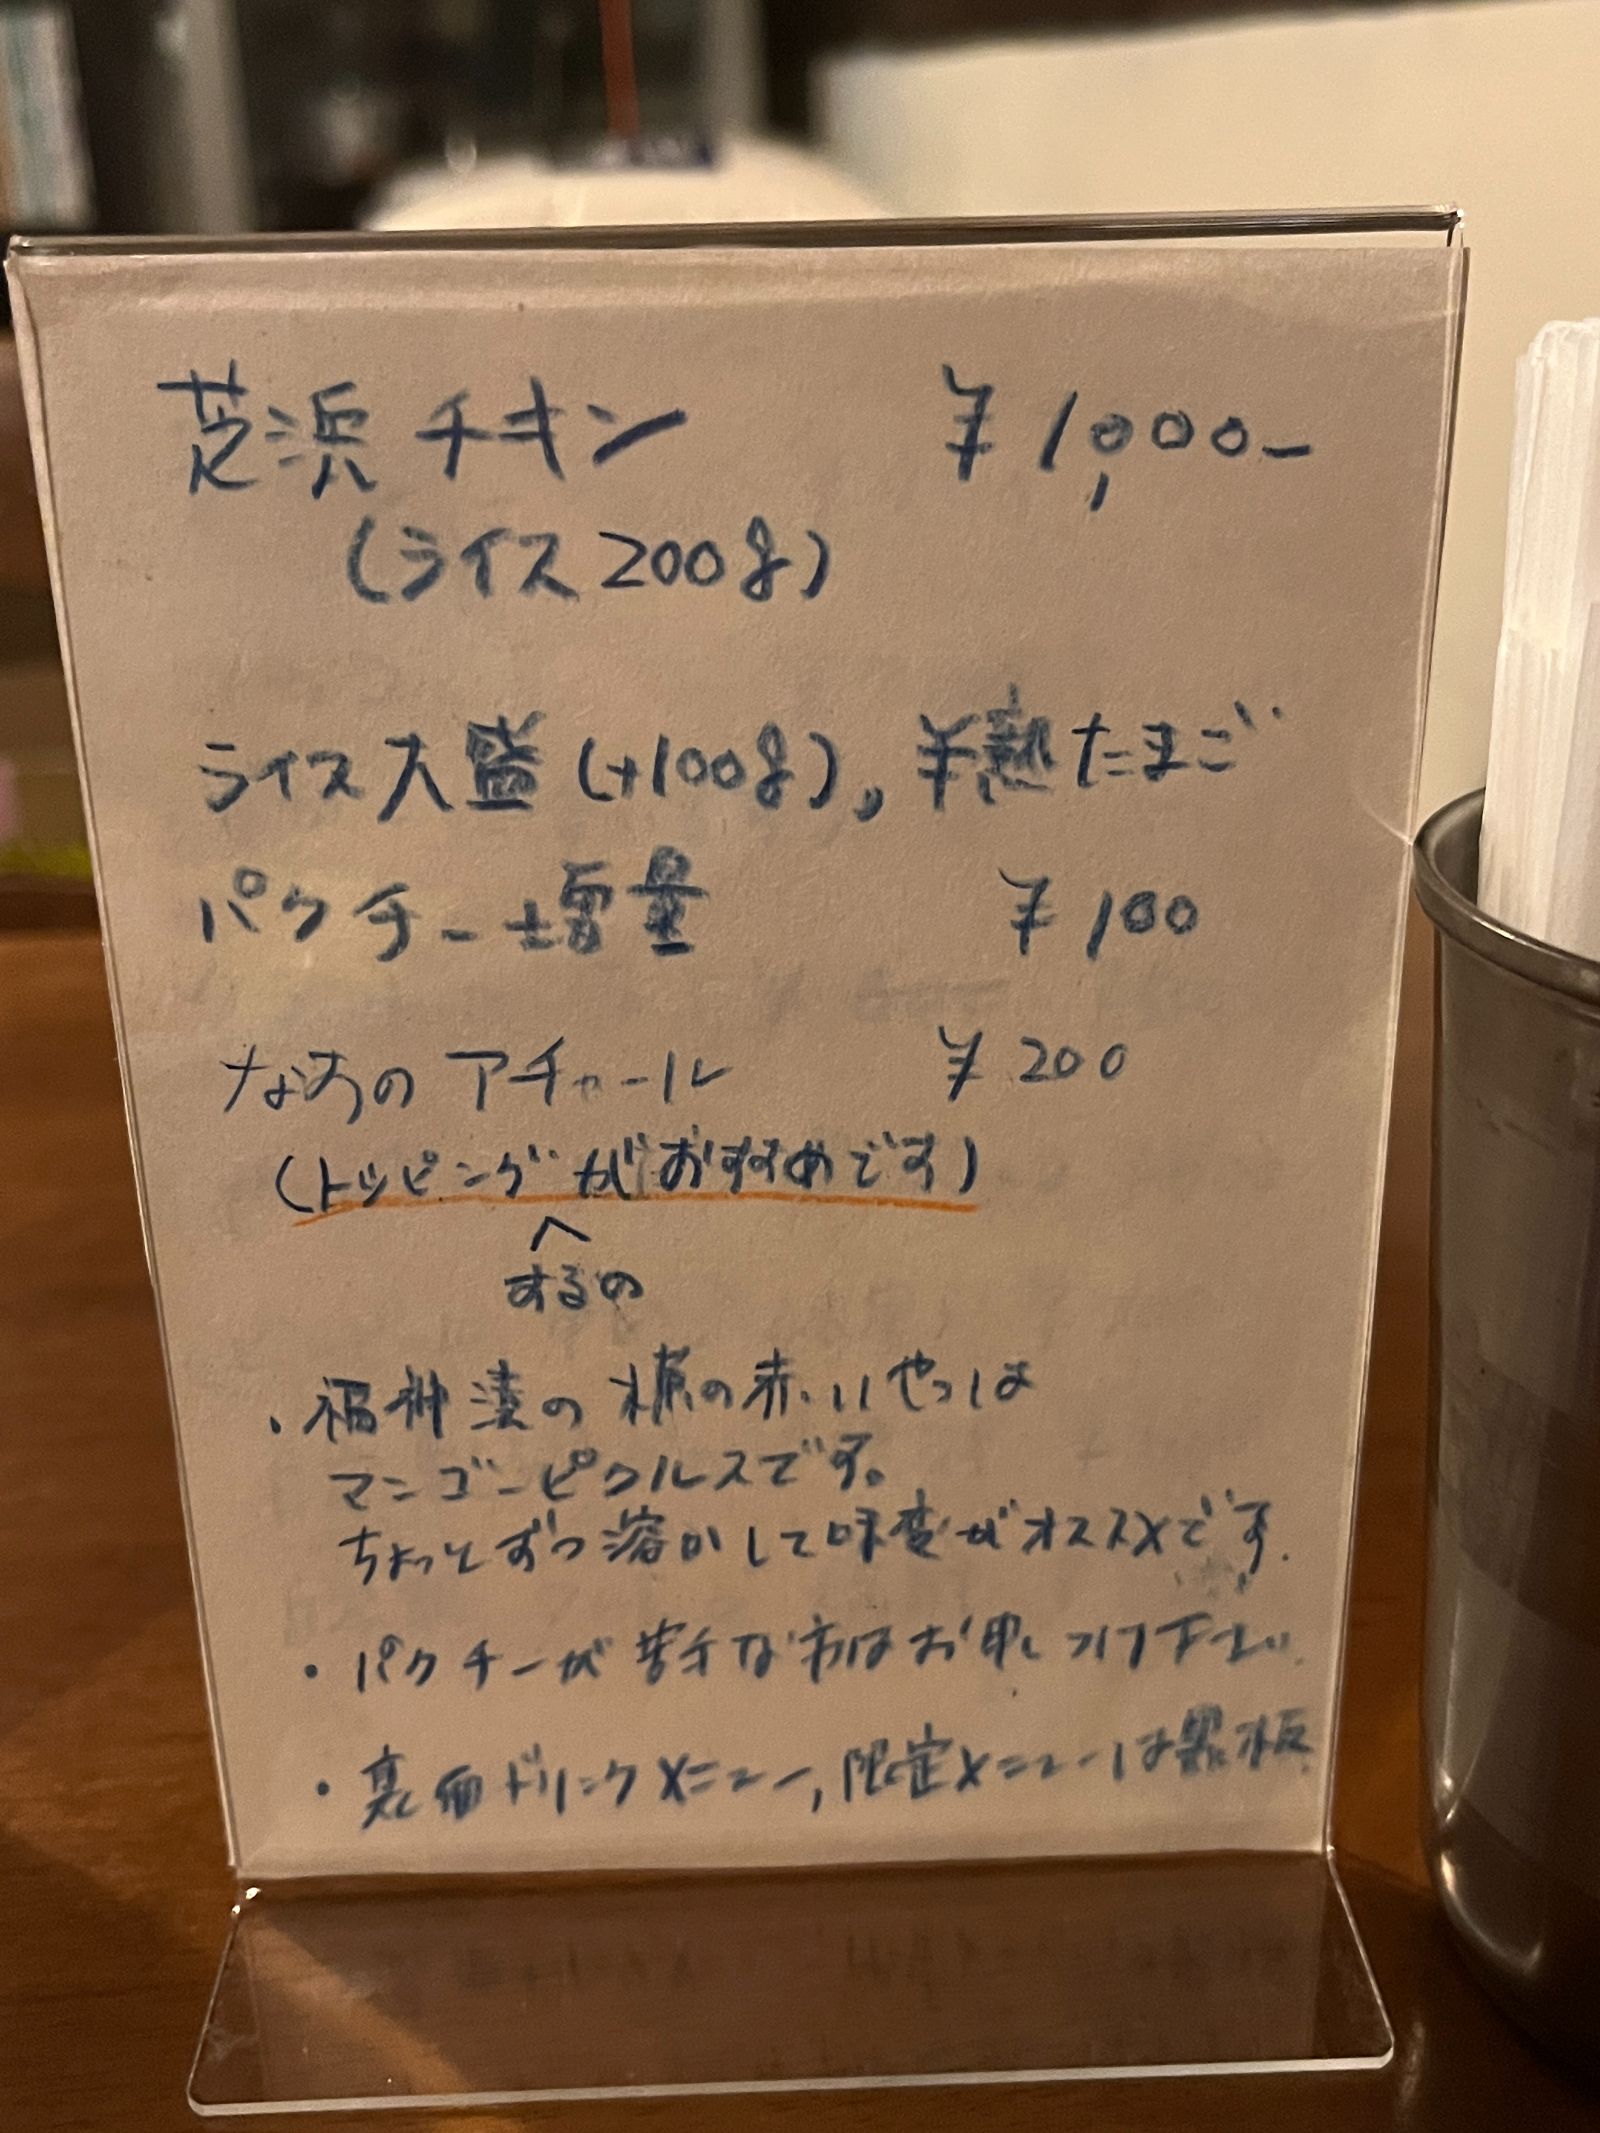 芝浜チキン ¥1,000-
(ライス200g)
ライス大盛(+100g)、半熟たまご
パクチー増量 ¥100
なすのアチャール ¥200
(トッピングがおすすめです)
するの
・福神漬の様の赤いやつは
マンゴーピクルスです。
ちょっとずつ溶かして味変がオススメです.
・パクチーが苦手な方はお申しつけ下さい.
・裏面ドリンクメニュー,限定メニューは黒板